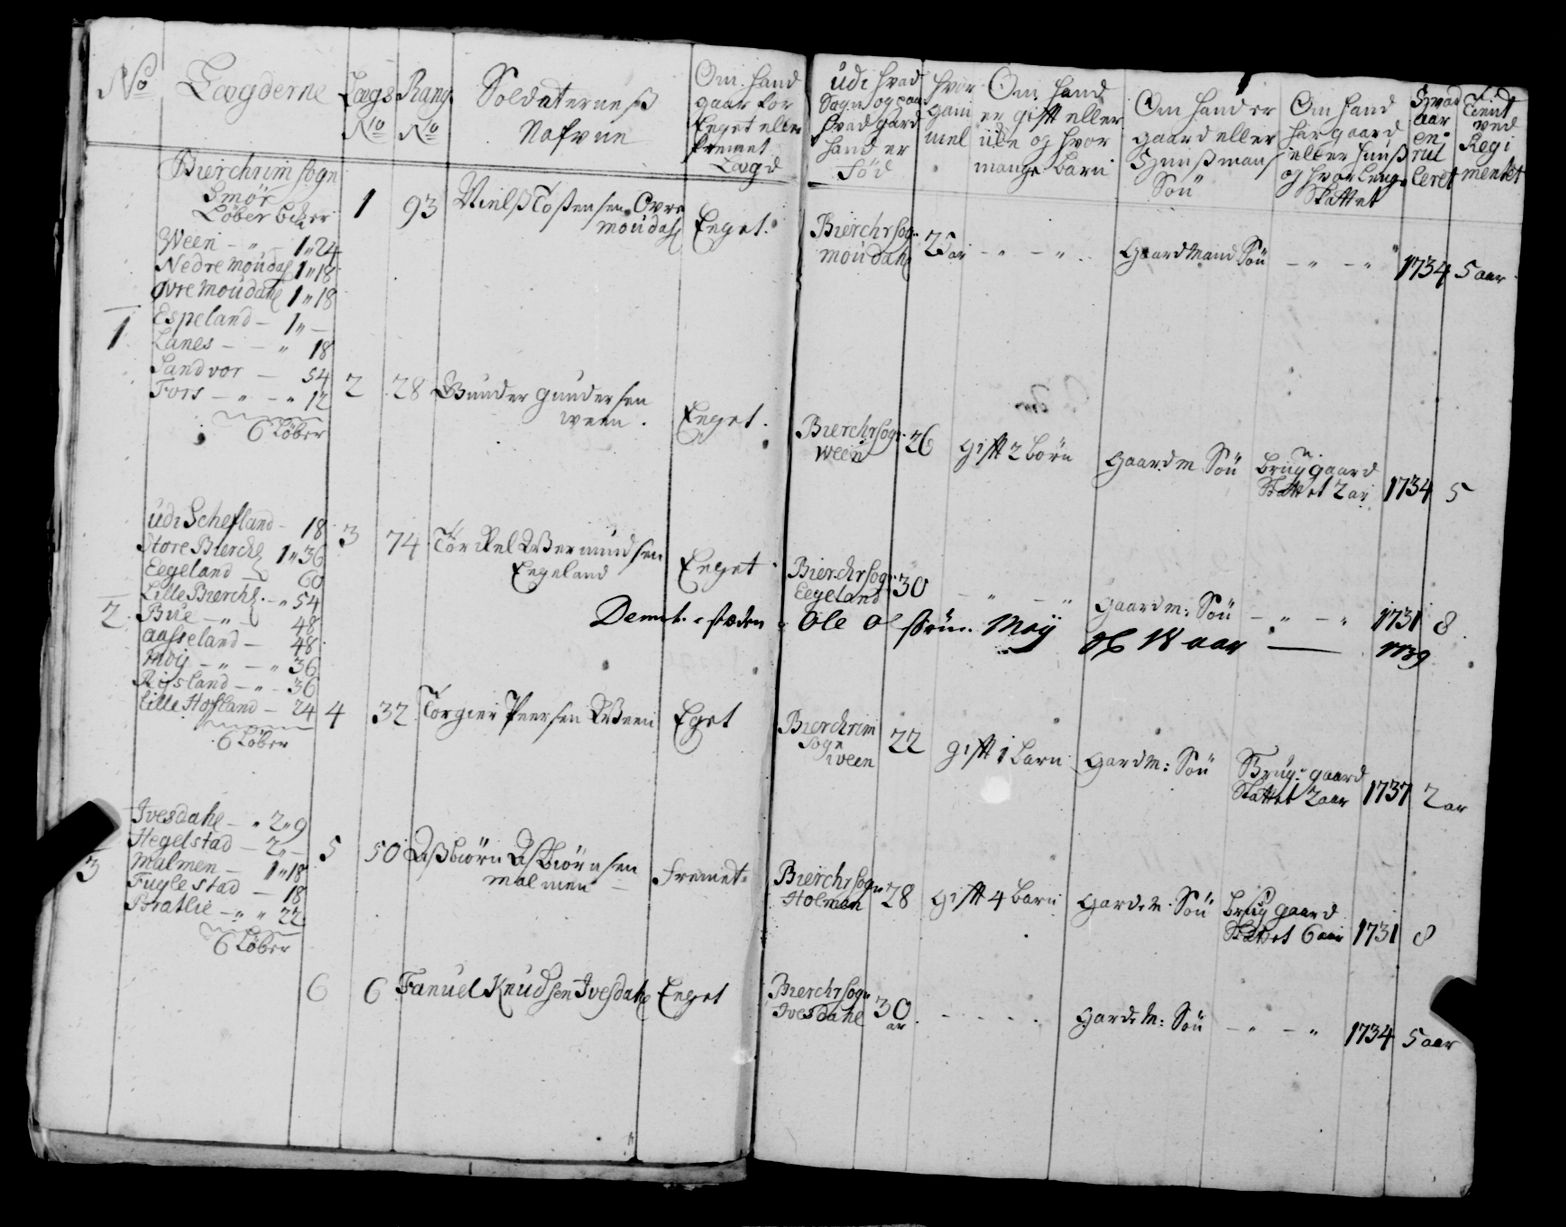 No
Lægderne
Lægs No
Rang No
Soldaterneß Nafvne
Om hand
gaar for
Eeget eller
fremet
Lægd
udi hvad
Sogn og paa
hvad gaard
hand er
Fød
hvor
gam
mel
Om hand
er gift eller
ude og hvor
mange barn
Om hand er
gaard eller
Hunßmans
Søn
Om hand
har gaard
eller hunß
og hvor lenge
Skattet
Hvad
aar
en
rul
leret
Tient
ved
Regi
mentet
Bierchrim sogn
Smør
Løber
Ween - " 1 " 24
Nedre Moudahl 1 " 18
øvre Moudahl 1 " 18
1
Espeland - 1 " -
Lanes - - " 18
Sandvor - 54
Fors - " - " 12
6 Løber
1 93 Nielß Toßensen Ovre
moudahl
Eeget.
Bierchr sogn
moudahl
25 ar - " - " ..
Gaardmand Søn - " - " 1734 5 aar
2 28 Gunder gundersen
ween .
Eeget .
Bierchr sogn
Ween
26 gift 2 børn
gaardm Søn
brug gaard
Skattet 2 ar
1734 5
udi Schefland - 18
Store Bierchl 1 " 36
Eegeland 60
Lille Bierchl . - " 54
2
Bue - " 48
aaseland - 48
Moy - " - " 36
Røysland - " - 36
Lille Hofland - 24
6 Løber
3 74 Torkel Wermundsen
Eegeland
Eeget .
Bierchr sogn
Eegeland
30 - " - "
gaardm: Søn - " - " 1731 8
Dennt. e stæden Ole Ol søn. Moy
18 aar 1739
4 32 Torgier Peersen Ween
Eget
Bierchrim
sogn
ween
22 gift 1 barn
gardm: Søn
Brug: gaard
Skattet 2 aar
1737 2 ar
Ivesdahl - " 2 " 9
Hegelstad - 2 " -
3
Malmen - 1 " 18
Fuglestad - 18
Bratlie - " " 22
6 Løber
5 50 Aßbiørn Aßbiørnsen
malmen -
fremet
Bierchr sogn
Holmen
28 gift 4 barn
gardm. Søn
brug gaard
Skattet 6 aar
1731 8
6 6 Fanuel Knudsen Ivesdahl
Eeget
Bierchr sogn
Ivesdahl
30
ar
. - . - . - .
gardm: Søn - " - " 1734 5 aar